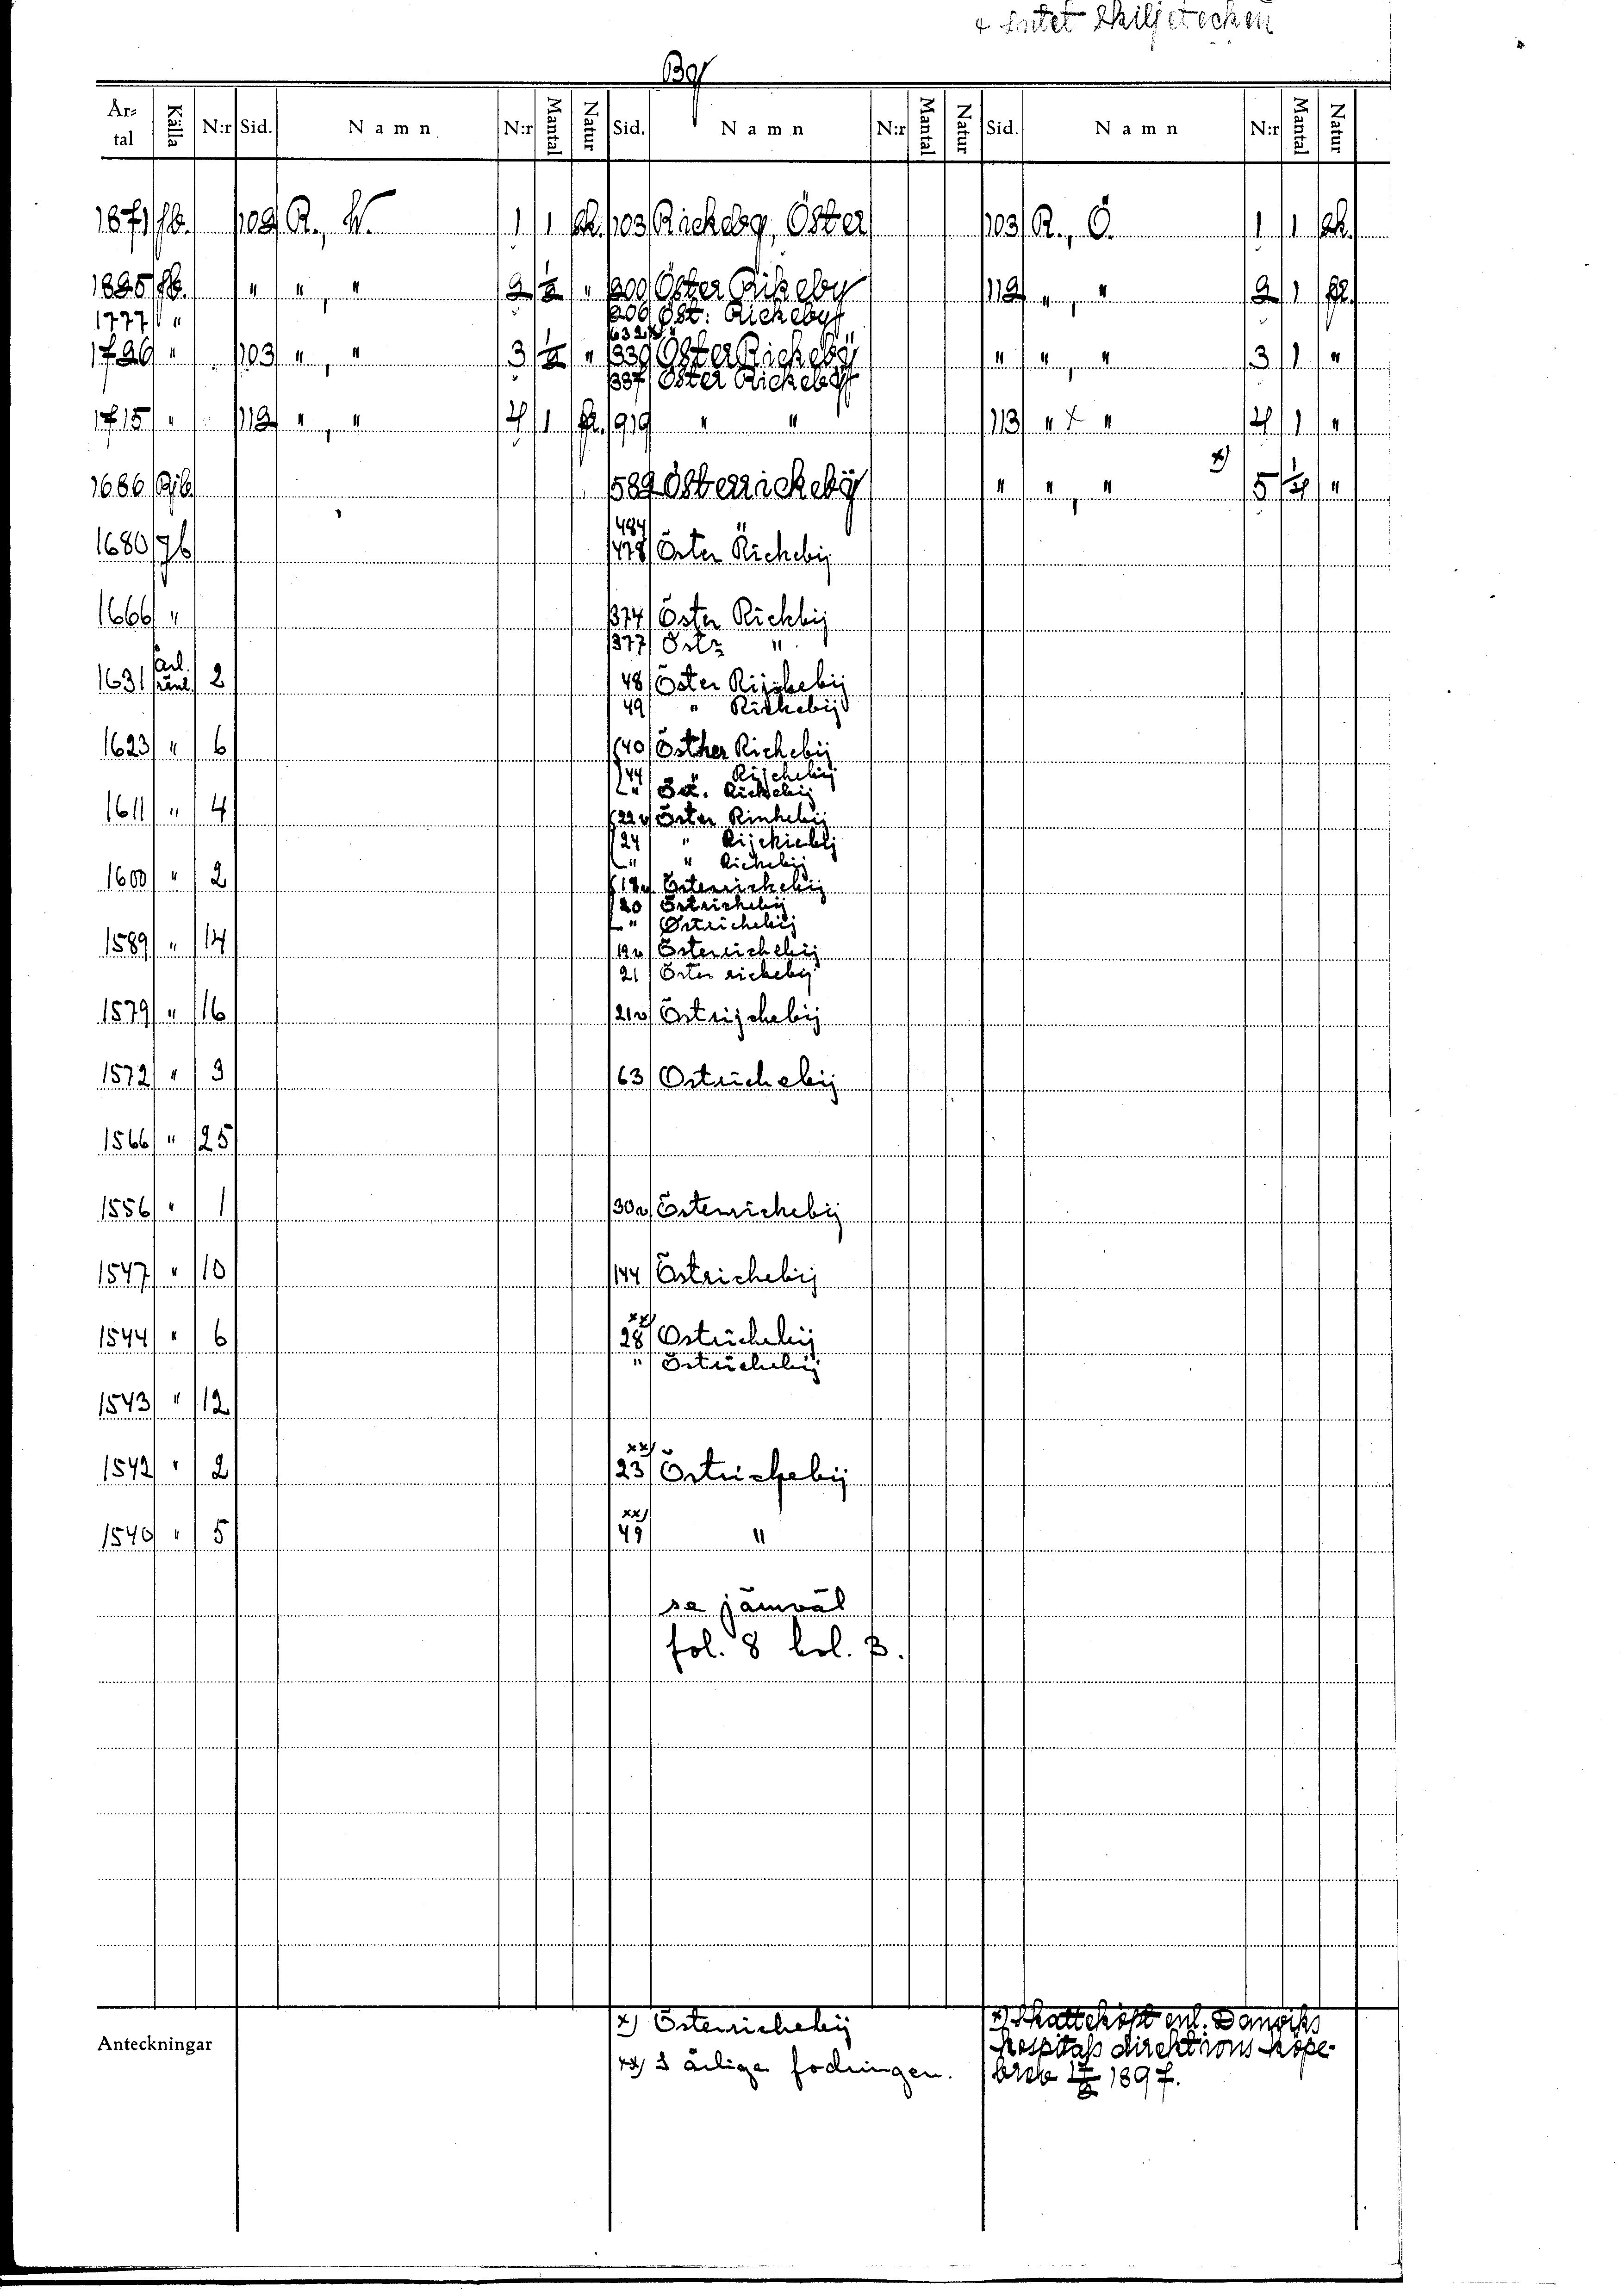 + Intet skiljetecken
By
År-tal Källa N:r Sid. Namn N:r Mantal Natur Sid. Namn N:r Mantal Natur Sid. Namn N:r Mantal Natur
1871 jb. 102 R., W. 1 1 sk. 103 Rickeby, Öster 103 R., Ö. 1 1 sk.
1825 jb. " " , " 2 1/2 " 200 Öster Rikeby 112 " , " 2 1 fr.
1777 " 206 Öst: Rickeby
632 x) "
1726 " 103 " , " 3 1/2 " 330 Öster Rickebÿ " " , " 3 1 "
337 Öster Rickeby
1715 " 112 " , " 4 1 fr. 919 " " 113 " + " 4 1 "
1686 Rjb. 582 Österrickebÿ " " , " x) 5 1/4 "
484 "
1680 Jb 478 Öster Rickebij
1666 " 374 Öster Rickbij
377 Östr "
1631 årl. ränt. 2 48 Öster Rijckebij
49 " Rickebij
1623 " 6 40 Östher Richebij
44 " Rijchebij
" Öst. Richebij
1611 " 4 22v Öster Rinkebij
24 " Rijckiebij
" " Richebij
1600 " 2 18v Österrickebij
20 Östrichebij
" Østrichebij
1589 " 14 19v Österrichebij
21 Öster rickebij
1579 " 16 21v Östrijchebij
1572 " 3 63 Ostrichebij
1566 " 25
1556 " 1 30v Österrickebij
1547 " 10 144 Östrichebij
1544 " 6 xx) 28 Ostrichebij
" Östrichebij
1543 " 12
1542 " 2 xx) 23 Östrichebij
1540 " 5 xx) 49 "
se jämväl
fol. 8 kol. 3.
Anteckningar
x) Österrichebij
xx) I årliga fodringen.
x) Skatteköpt enl. Danviks
hospitals direktions köpe-
brev 17/2 1897.